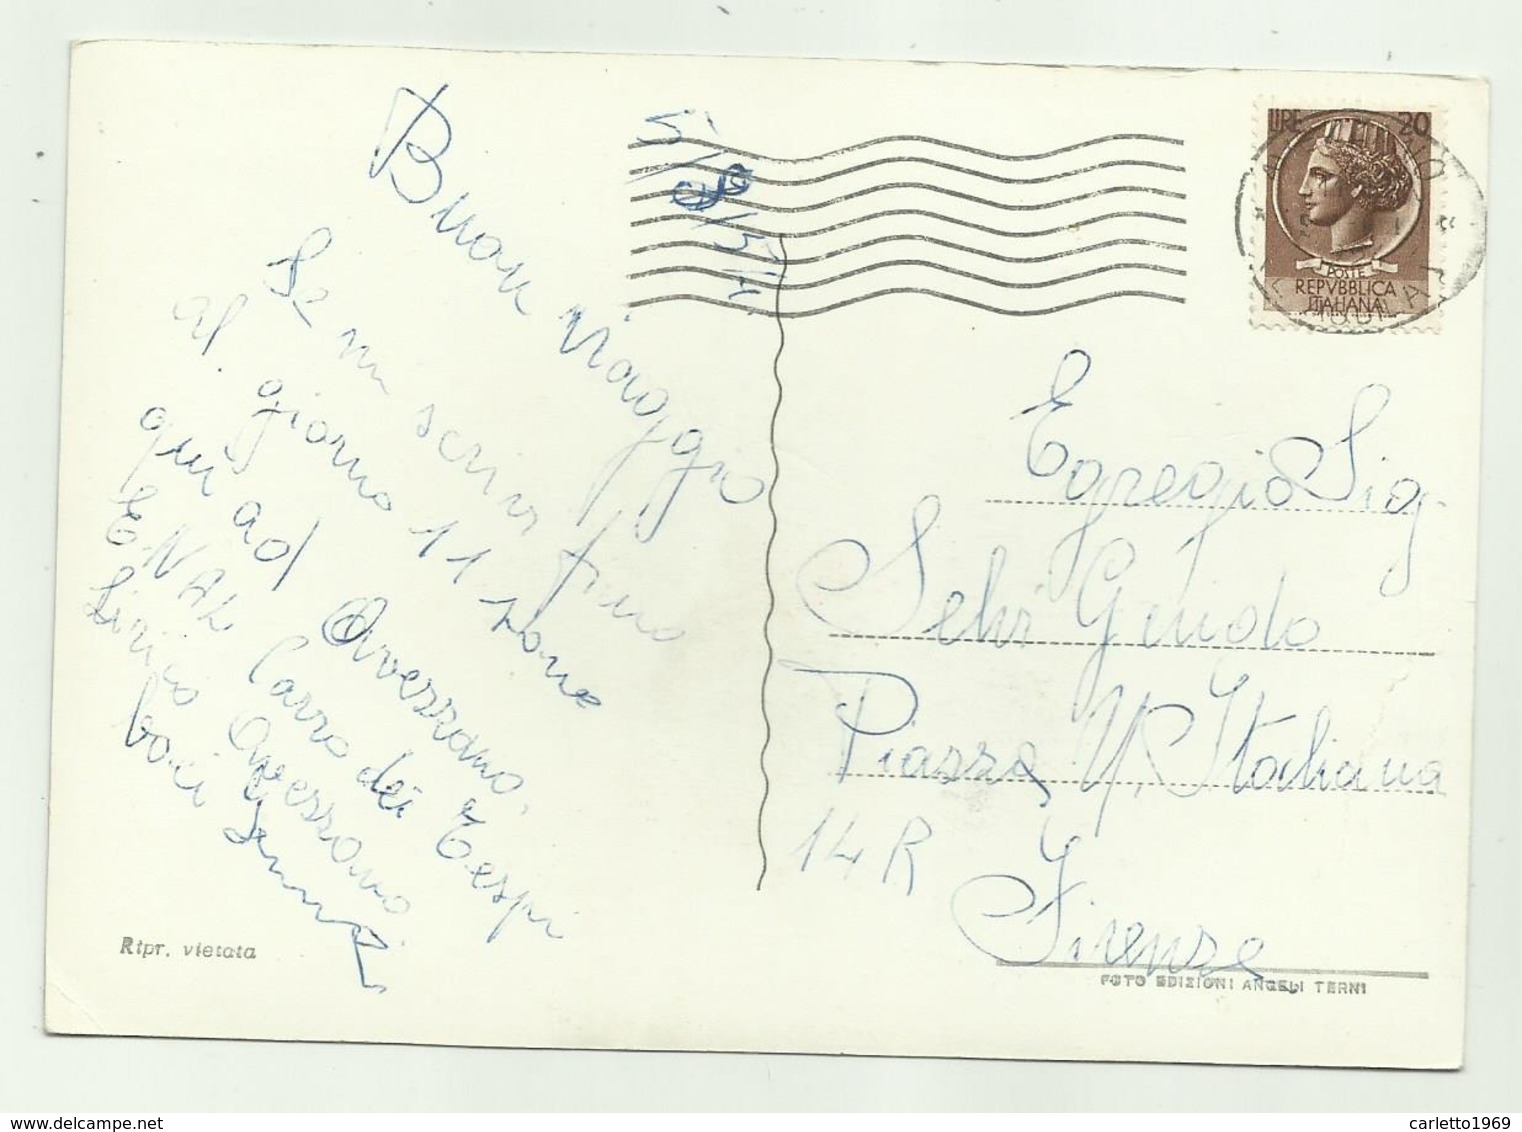 5/8/54
Buon Viaggio
Se mi scrivi fino
al giorno 11 sono
qui ad Avezzano,
ENAL Carro dei Tespi
Lirico Avezzano
baci
LIRE 20
POSTE
REPVBBLICA
ITALIANA
Egregio Sig.
Selvi Guido
Piazza V. Italiana
14 R
Firenze
Ripr. vietata
FOTO EDIZIONI ANGELI TERNI
carletto1969